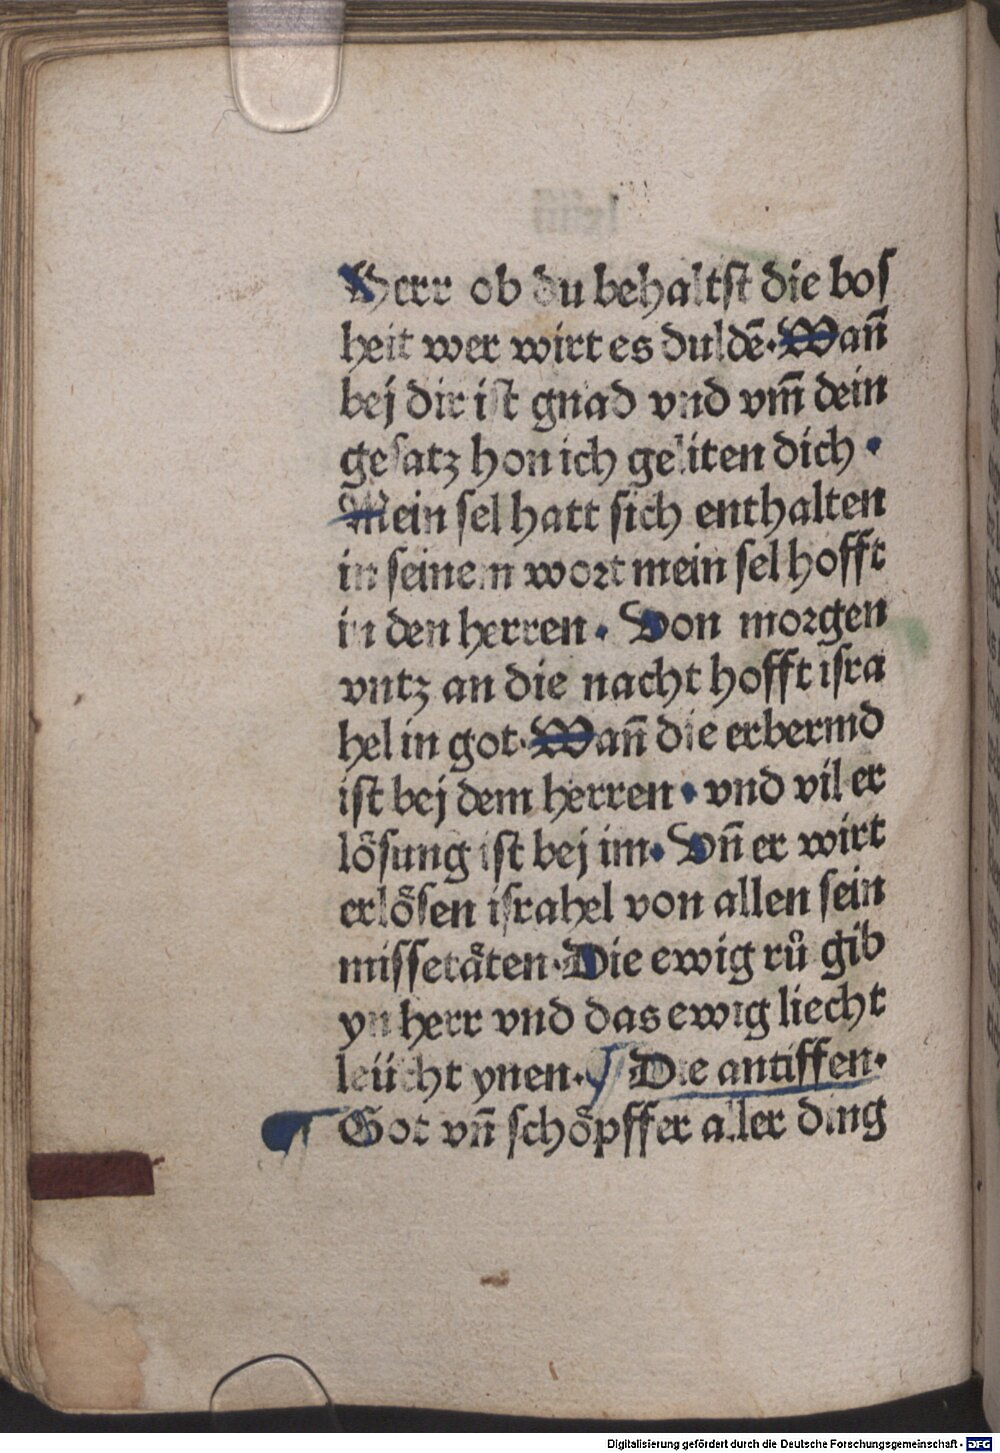 Herr ob du behaltst die bos
heit wer wirt es duldē. Wañ
bej dir ist gnad vnd vm̄ dein
gesatz hon ich geliten dich .
Mein sel hatt sich enthalten
in seinem wort mein sel hofft
in den herren. Von morgen
vntz an die nacht hofft isra
hel in got. Wañ die erbermd
ist bej dem herren . vnd vil er
lösung ist bej im. Vñ er wirt
erlösen israhel von allen sein
missetäten. Die ewig rů gib
yn herr vnd das ewig liecht
leücht ynen. Die antiffen.
Got vñ schöpffer aller ding
Digitalisierung gefördert durch die Deutsche Forschungsgemeinschaft - DFG